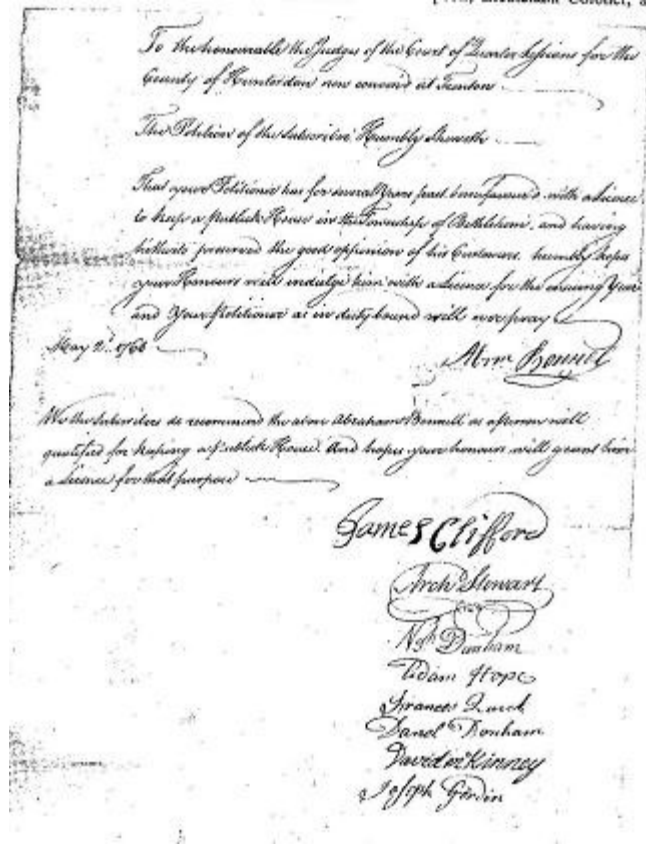 Lieutenant Colonel, a
To the honourable the Judges of the Court of Quarter Sessions for the
County of Hunterdon now conven'd at Trenton
The Petition of the Subscriber Humbly Sheweth
That your Petitioner has for several Years past been favour'd with a licence
to keep a Publick House in the Township of Bethlehem, and having
hitherto preserved the good oppinion of his Customers humbly hopes
your Honours will indulge him with a Licence for the ensuing Year
and Your Petitioner as in duty bound will ever pray
May 2d. 1768
Abm Bonnel
We the Subscribers do recommend the above Abraham Bonnell as a person well
qualified for keeping a Publick House. And hopes your honours will grant him
a Licence for that purpose
James Clifford
Arch Stewart
Nehh Dunham
Adam Hope
Frances Quick
Danel Donham
David mcKinney
Joseph Gordin